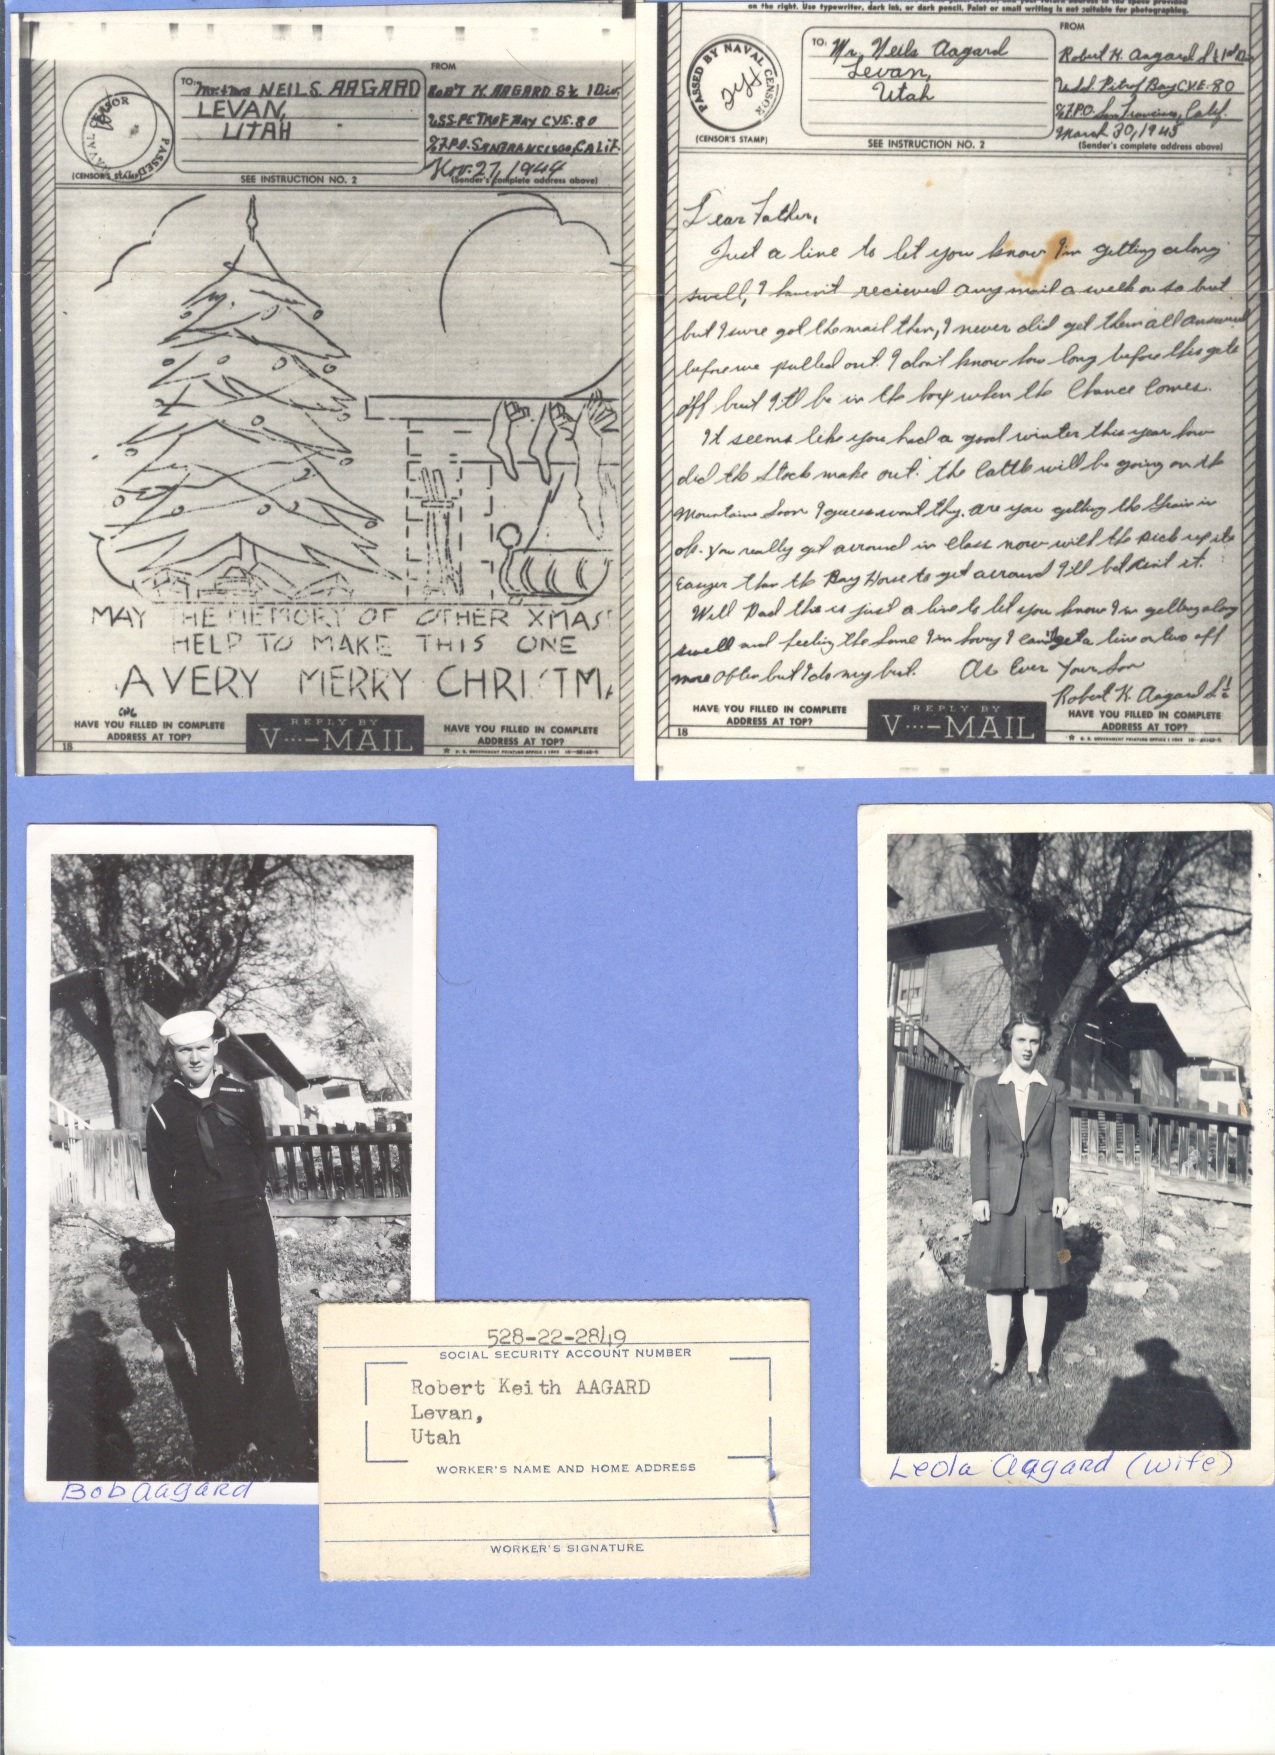 TO: Mr & Mrs NEILS AAGARD
LEVAN,
UTAH
FROM
ROB'T K. AAGARD S 1/c 1 Div.
U.S.S. PETROF BAY CVE. 80
% F.P.O. SAN FRANCISCO, CALIF.
Nov. 27, 1944
(CENSOR'S STAMP)
SEE INSTRUCTION NO. 2
(Sender's complete address above)
NAVAL CENSOR
PASSED
MAY THE MEMORY OF OTHER XMAS
HELP TO MAKE THIS ONE
A VERY MERRY CHRISTMA
HAVE YOU FILLED IN COMPLETE
ADDRESS AT TOP?
REPLY BY
V···-MAIL
HAVE YOU FILLED IN COMPLETE
ADDRESS AT TOP?
18
on the right. Use typewriter, dark ink, or dark pencil. Faint or small writing is not suitable for photographing.
PASSED BY NAVAL CENSOR
(CENSOR'S STAMP)
TO: Mr. Neils Aagard
Levan,
Utah
SEE INSTRUCTION NO. 2
FROM
Robert K. Aagard S 1/c 1st Div
U.S.S. Petrof Bay CVE. 80
% F.P.O. San Francisco, Calif.
March 30, 1945
(Sender's complete address above)
Dear Father,
Just a line to let you know I'm getting along
swell, I haven't recieved any mail a week or so but
but I sure got the mail then, I never did get them all answered
before we pulled out. I don't know how long before this gets
off but I'll be in the box when the chance comes.
It seems like you had a good winter this year how
did the stock make out. the cattle will be going on the
Mountains soon I guess wont they. are you getting the Grain in
ok. You really get arround in class now with the pick up its
easyer than the Bay Horse to get arround I'll bet aint it.
Well Dad this is just a line to let you know I'm getting along
swell and feeling the same I'm sorry I can't get a line or two off
more often but I do my best. As Ever Your Son
Robert K. Aagard S 1/c
HAVE YOU FILLED IN COMPLETE
ADDRESS AT TOP?
REPLY BY
V···-MAIL
HAVE YOU FILLED IN COMPLETE
ADDRESS AT TOP?
18
Bob Aagard
528-22-2849
SOCIAL SECURITY ACCOUNT NUMBER
Robert Keith AAGARD
Levan,
Utah
WORKER'S NAME AND HOME ADDRESS
WORKER'S SIGNATURE
Leola Aagard (wife)